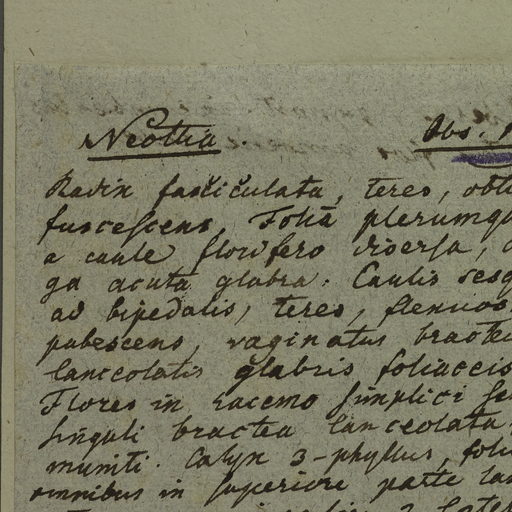 Neottia. Obs.
Radix fasciculata, teres, obtu
fuscescens, Folia plerumqu
a caule florifero diversa,
ga acuta glabra. Caulis sesq
ad bipedalis, teres, flexuos
pubescens, vaginatus bracte
lanceolatis glabris foliaceis
Flores in racemo simplici
singuli bractea lanceolata
muniti. Calyx 3-phyllus, foli
omnibus in superiore parte lan